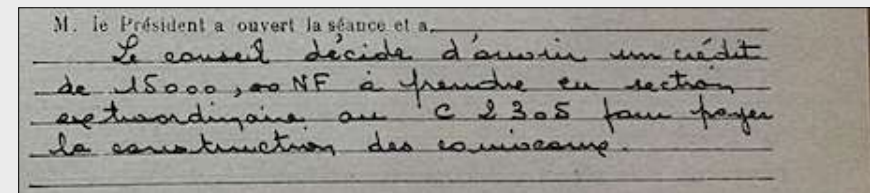 M. le Président a ouvert la séance et a
Le conseil décide d'ouvrir un crédit
de 15000,00 NF à prendre en section
extraordinaire au C 2305 pour payer
la construction des caniveaux.